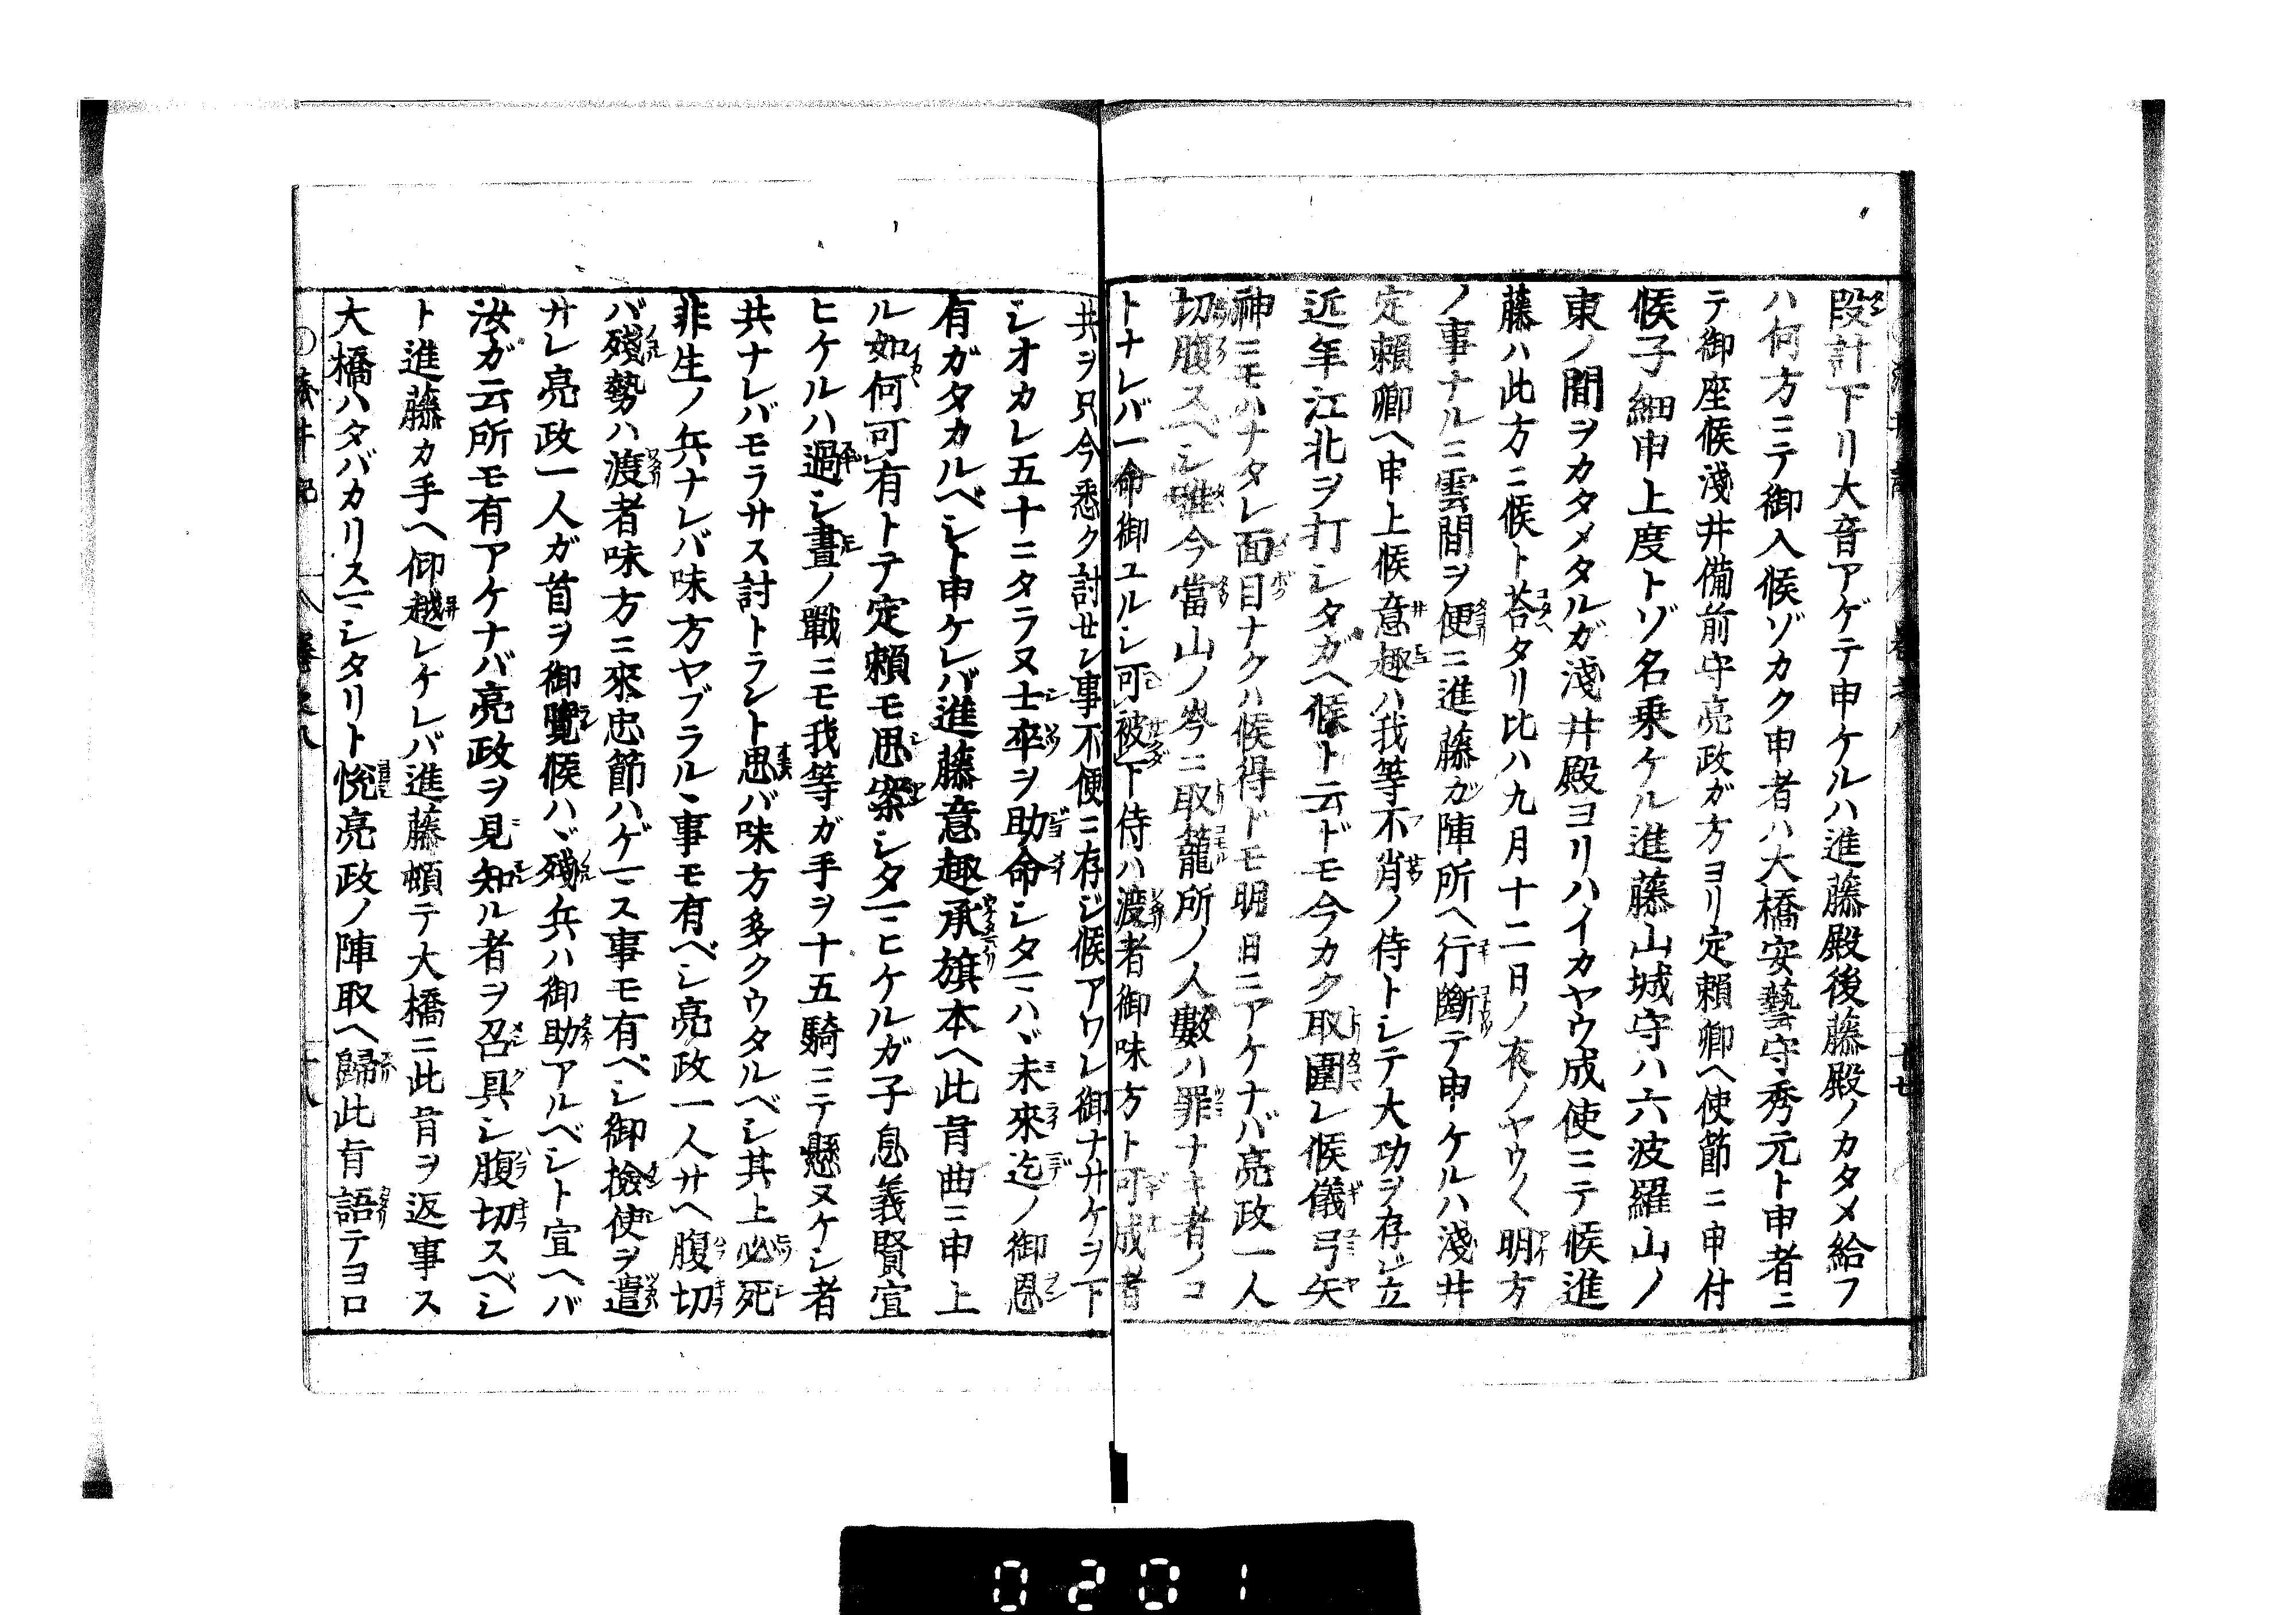 段計下リ大音アゲテ申ケルハ進藤殿後藤殿ノカタメ給フ
ハ何方ニテ御入候ゾカク申者ハ大橋安藝守秀元ト申者ニ
テ御座候淺井備前守亮政ガ方ヨリ定頼卿ヘ使節ニ申付
候子細申上度トゾ名乗ケル進藤山城守ハ六波羅山ノ
東ノ間ヲカタメタルガ淺井殿ヨリハイカヤウ成使ニテ候進
藤ハ此方ニ候ト荅タリ比ハ九月十二日ノ夜ノヤウ〱明方
ノ事ナルニ雲間ヲ便ニ進藤ガ陣所ヘ行斷テ申ケルハ淺井
定頼卿ヘ申上候意趣ハ我等不肖ノ侍トシテ大功ヲ存シ立
近年江北ヲ打シタガヘ候ト云ドモ今カク取圍レ候儀弓矢
神ニモハナタレ面目ナクハ候得ドモ明日ニアケナバ亮政一人
切腹スベシ唯今當山ノ岑ニ取籠所ノ人數ハ罪ナキ者ノコ
トナレバ一命御ユルシ可被下侍ハ渡者御味方ト可成者
共ヲ只今悉ク討せン事不便ニ存シ候アワレ御ナサケヲ下
シオカレ五十ニタラヌ士卒ヲ助命シタマハヾ未來迄ノ御恩
有ガタカルベシト申ケレバ進藤意趣承旗本ヘ此旨曲ニ申上
ル如何可有トテ定頼モ思案シタマヒケルガ子息義賢宣
ヒケルハ過シ晝ノ戰ニモ我等ガ手ヲ十五騎ニテ懸ヌケシ者
共ナレバモラサス討トラント思バ味方多クウタルベシ其上必死
非生ノ兵ナレバ味方ヤブラルヽ事モ有ベシ亮政一人サヘ腹切
バ殘勢ハ渡者味方ニ來忠節ハゲマス事モ有ベシ御撿使ヲ遣
サレ亮政一人ガ首ヲ御覽候ハヾ殘兵ハ御助アルベシト宣ヘバ
汝ガ云所モ有アケナバ亮政ヲ見知ル者ヲ召具シ腹切スベシ
ト進藤カ手ヘ仰越レケレバ進藤頓テ大橋ニ此旨ヲ返事ス
大橋ハタバカリスマシタリト悦亮政ノ陣取ヘ歸此旨語テヨロ
0201